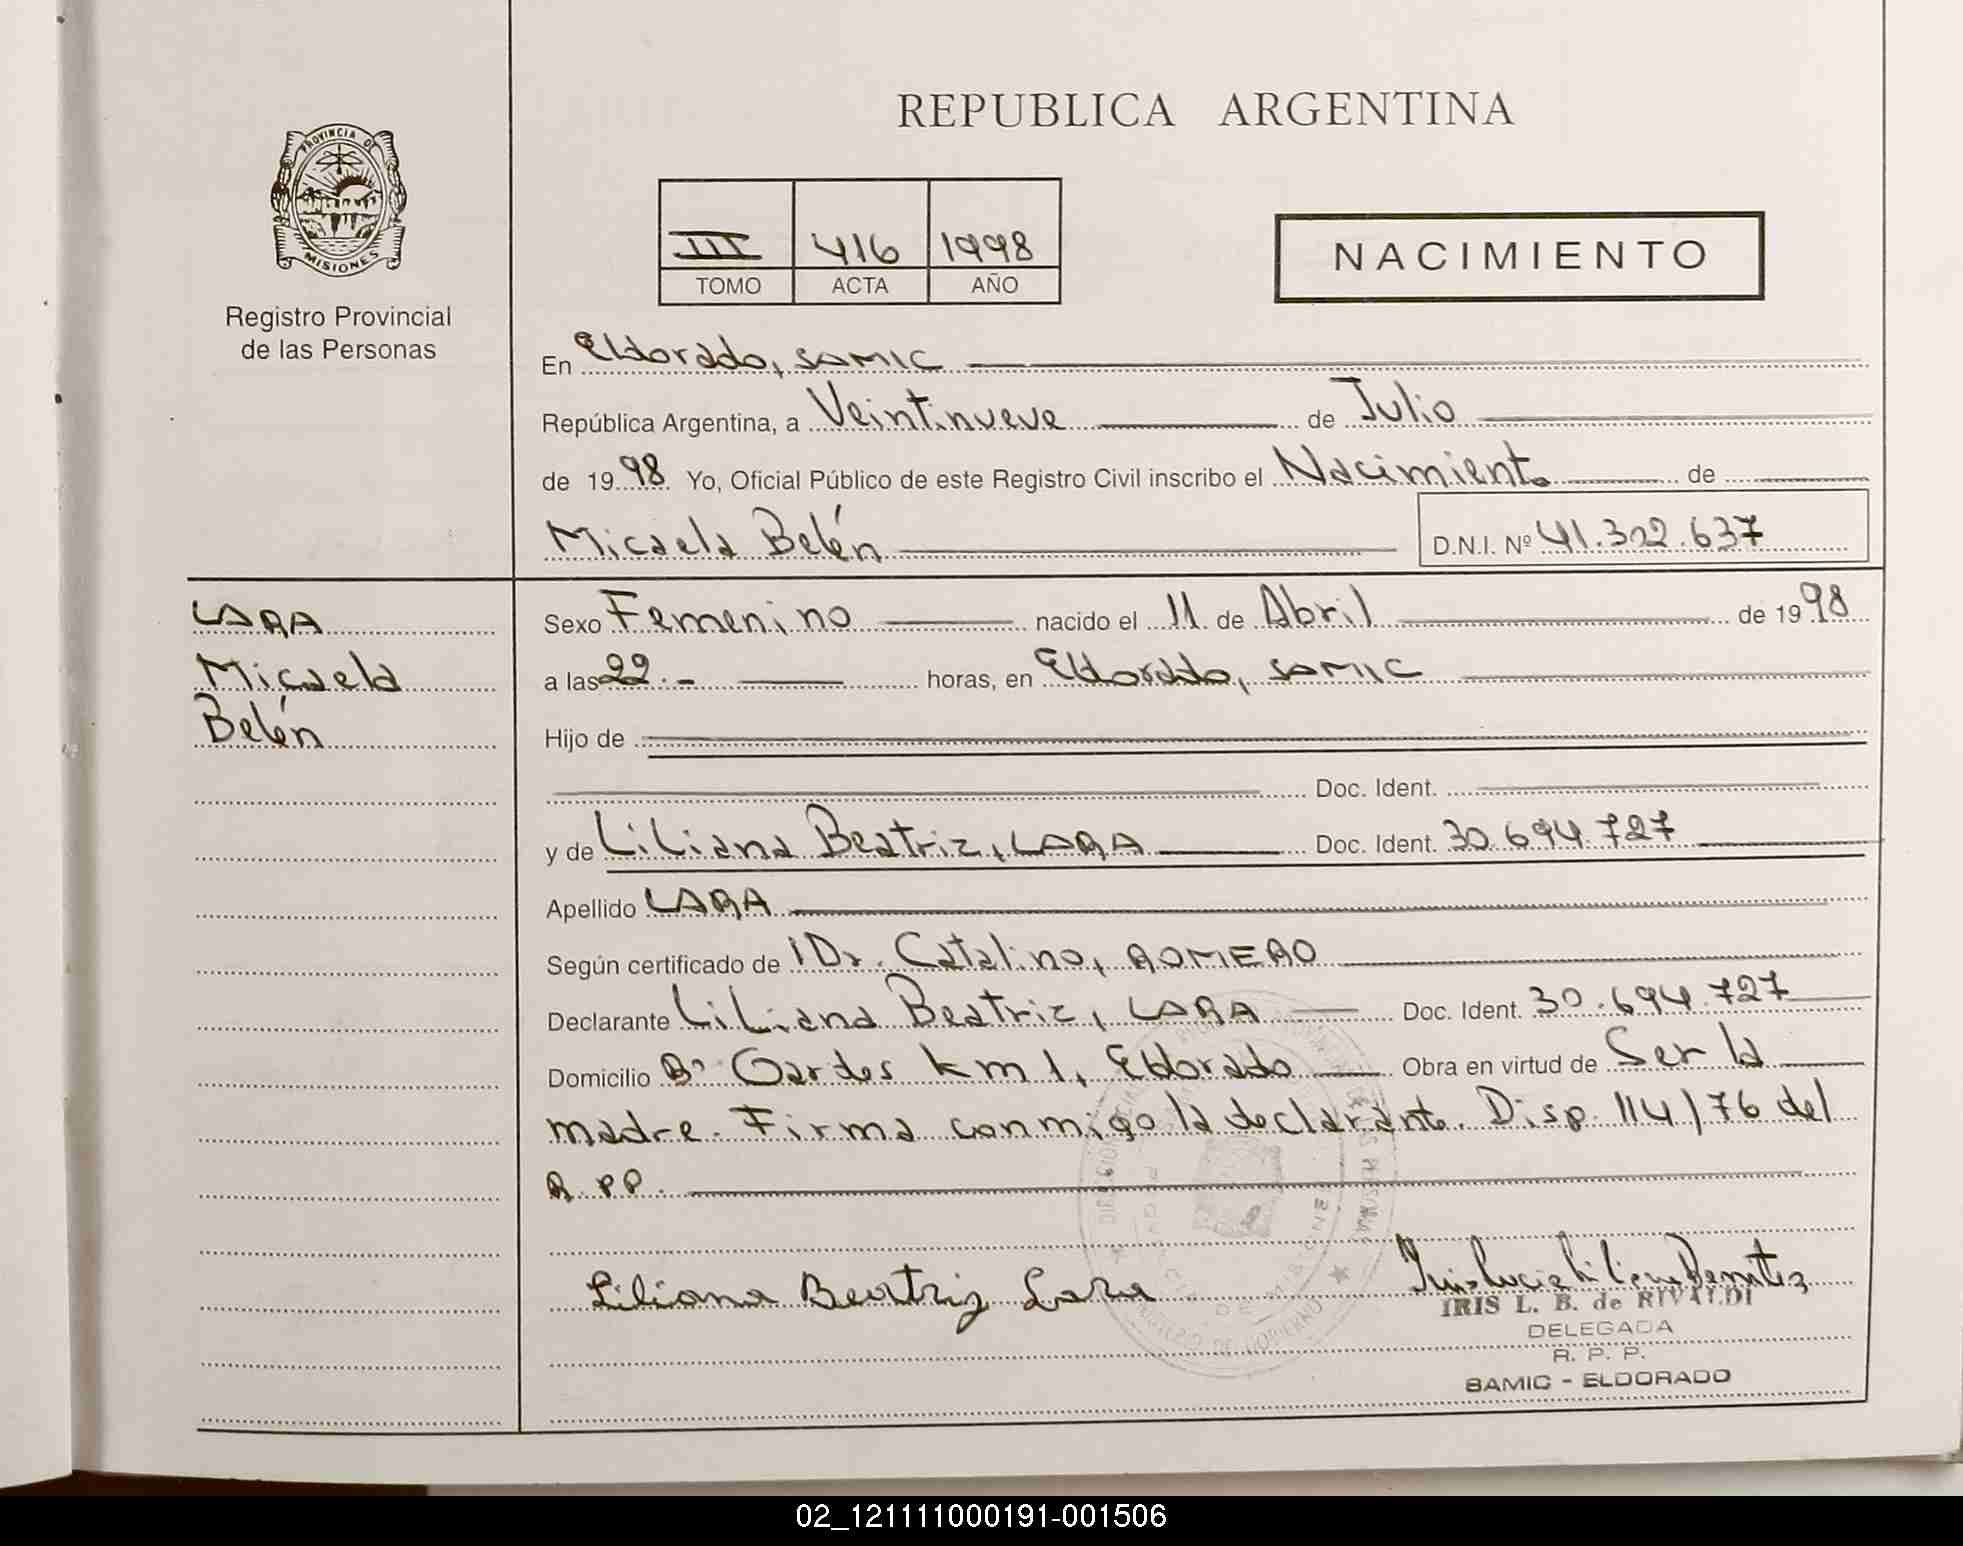 REPUBLICA ARGENTINA
PROVINCIA DE
MISIONES
Registro Provincial
de las Personas
III 416 1998
TOMO ACTA AÑO
NACIMIENTO
En Eldorado, SAMIC
República Argentina, a Veintinueve de Julio
de 1998 Yo, Oficial Público de este Registro Civil inscribo el Nacimiento de
Micaela Belén D.N.I. Nº 41.302.637
LARA
Micaela
Belén
Sexo Femenino nacido el 11 de Abril de 1998
a las 22.- horas, en Eldorado, SAMIC
Hijo de
Doc. Ident.
y de Liliana Beatriz, LARA Doc. Ident. 30.694.727
Apellido LARA
Según certificado de Dr. Catalino, ROMERO
Declarante Liliana Beatriz, LARA Doc. Ident. 30.694.727
Domicilio Bº Gardes km 1, Eldorado Obra en virtud de Ser la
madre. Firma conmigo la declarante. Disp. 114/76 del
R.PP.
Liliana Beatriz Lara
IRIS L. B. de RIVALDI
DELEGADA
R. P. P.
SAMIC - ELDORADO
02_121111000191-001506